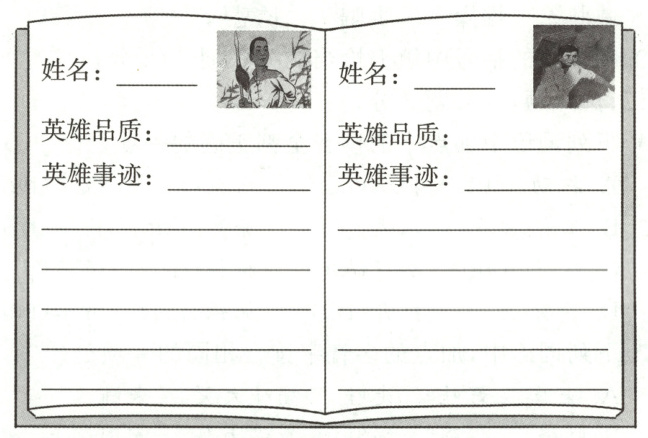 姓名：
英雄品质：
英雄事迹：
姓名：
英雄品质：
英雄事迹：